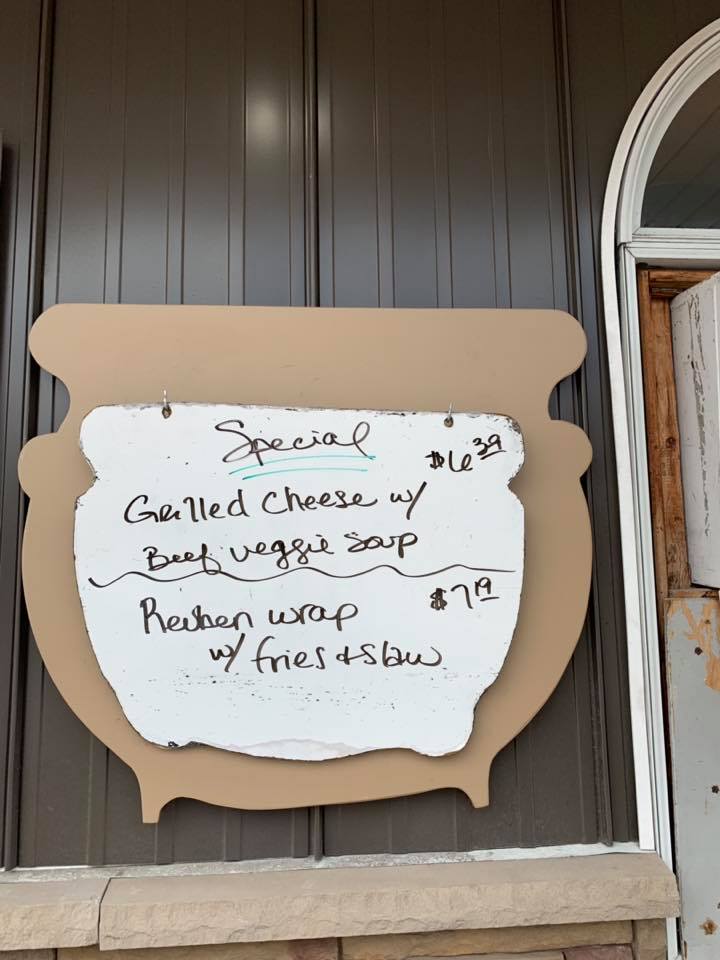 Special
$6.39
Grilled Cheese w/
Beef veggie Soup
Reuben wrap $7.19
w/ fries + slaw